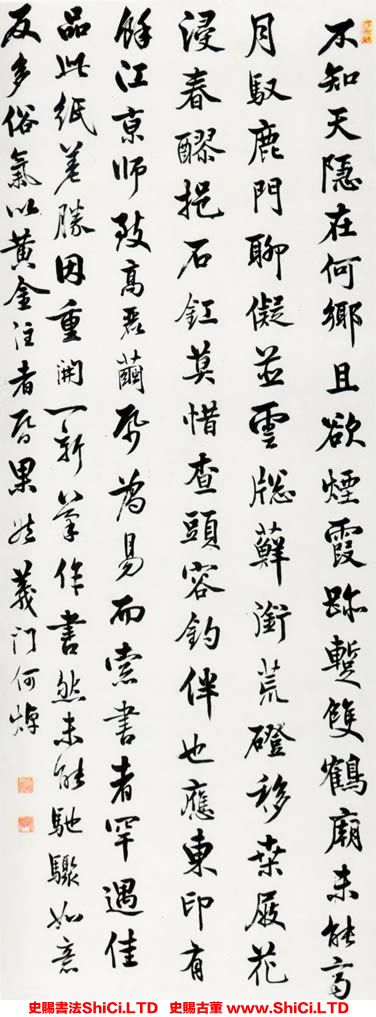 不知天隐在何鄉且欲煙霞跡蹔雙鶴廟未能高
月馭鹿門聊儗並雲牕蘚銜荒磴移桒屐花
浸春醪挹石釭莫惜查頭容釣伴也應東印有
餘江京師致高麗繭帋為易而索書者罕遇佳
品此紙差勝因重開一新筆作書然未能馳驟如意
反多俗氣以黃金注者昏果然義门何焯
史賜書法ShiCi.LTD 史賜古董 www.ShiCi.LTD